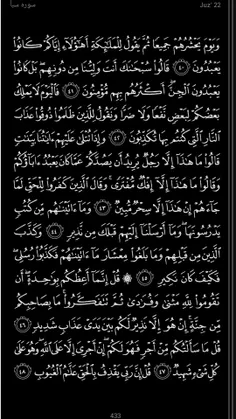 سورة سبأ Juz' 22
وَيَوْمَ يَحْشُرُهُمْ جَمِيعًا ثُمَّ يَقُولُ لِلْمَلَٰٓئِكَةِ أَهَٰٓؤُلَآءِ إِيَّاكُمْ كَانُوا۟
يَعْبُدُونَ ٤٠ قَالُوا۟ سُبْحَٰنَكَ أَنتَ وَلِيُّنَا مِن دُونِهِم بَلْ كَانُوا۟
يَعْبُدُونَ ٱلْجِنَّ أَكْثَرُهُم بِهِم مُّؤْمِنُونَ ٤١ فَٱلْيَوْمَ لَا يَمْلِكُ
بَعْضُكُمْ لِبَعْضٍ نَّفْعًا وَلَا ضَرًّا وَنَقُولُ لِلَّذِينَ ظَلَمُوا۟ ذُوقُوا۟ عَذَابَ
ٱلنَّارِ ٱلَّتِى كُنتُم بِهَا تُكَذِّبُونَ ٤٢ وَإِذَا تُتْلَىٰ عَلَيْهِمْ ءَايَٰتُنَا بَيِّنَٰتٍ
قَالُوا۟ مَا هَٰذَآ إِلَّا رَجُلٌ يُرِيدُ أَن يَصُدَّكُمْ عَمَّا كَانَ يَعْبُدُ ءَابَآؤُكُمْ
وَقَالُوا۟ مَا هَٰذَآ إِلَّآ إِفْكٌ مُّفْتَرًى وَقَالَ ٱلَّذِينَ كَفَرُوا۟ لِلْحَقِّ لَمَّا
جَآءَهُمْ إِنْ هَٰذَآ إِلَّا سِحْرٌ مُّبِينٌ ٤٣ وَمَآ ءَاتَيْنَٰهُم مِّن كُتُبٍ
يَدْرُسُونَهَا وَمَآ أَرْسَلْنَآ إِلَيْهِمْ قَبْلَكَ مِن نَّذِيرٍ ٤٤ وَكَذَّبَ
ٱلَّذِينَ مِن قَبْلِهِمْ وَمَا بَلَغُوا۟ مِعْشَارَ مَآ ءَاتَيْنَٰهُمْ فَكَذَّبُوا۟ رُسُلِى
فَكَيْفَ كَانَ نَكِيرِ ٤٥ قُلْ إِنَّمَآ أَعِظُكُم بِوَٰحِدَةٍ أَن
تَقُومُوا۟ لِلَّهِ مَثْنَىٰ وَفُرَٰدَىٰ ثُمَّ تَتَفَكَّرُوا۟ مَا بِصَاحِبِكُم
مِّن جِنَّةٍ إِنْ هُوَ إِلَّا نَذِيرٌ لَّكُم بَيْنَ يَدَىْ عَذَابٍ شَدِيدٍ
٤٦ قُلْ مَا سَأَلْتُكُم مِّنْ أَجْرٍ فَهُوَ لَكُمْ إِنْ أَجْرِىَ إِلَّا عَلَى ٱللَّهِ وَهُوَ عَلَىٰ
كُلِّ شَىْءٍ شَهِيدٌ ٤٧ قُلْ إِنَّ رَبِّى يَقْذِفُ بِٱلْحَقِّ عَلَّٰمُ ٱلْغُيُوبِ ٤٨
433